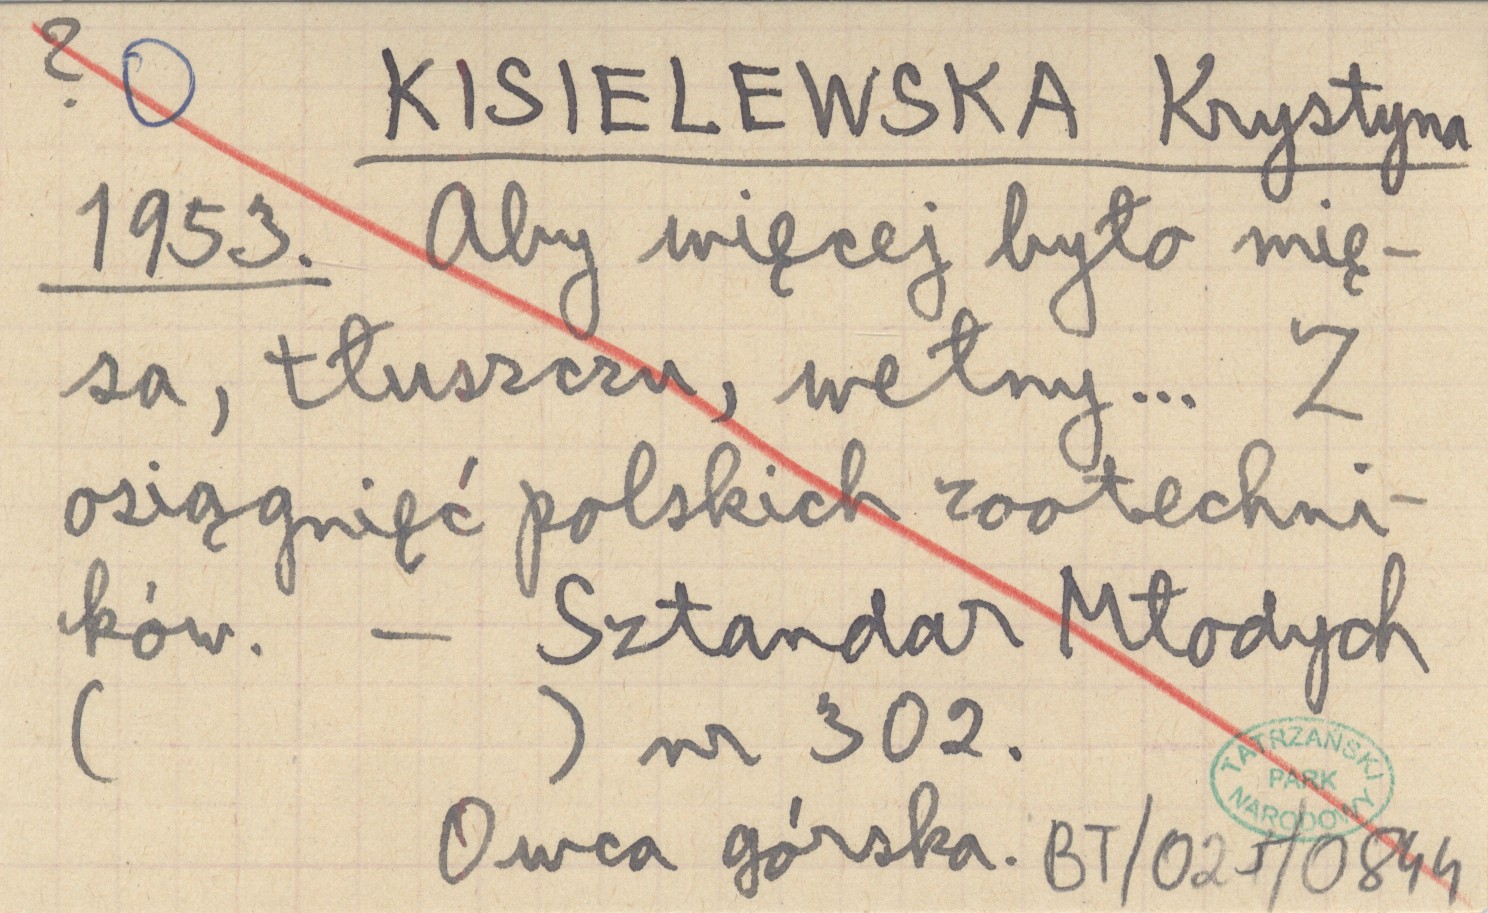 ?
KISIELEWSKA Krystyna
1953. Aby więcej było mię-
sa, tłuszczu, wełny... Z
osiągnięć polskich zootechni-
ków. — Sztandar Młodych
( ) nr 302.
TATRZAŃSKI
PARK
NARODOWY
Owca górska. BT/025/0844